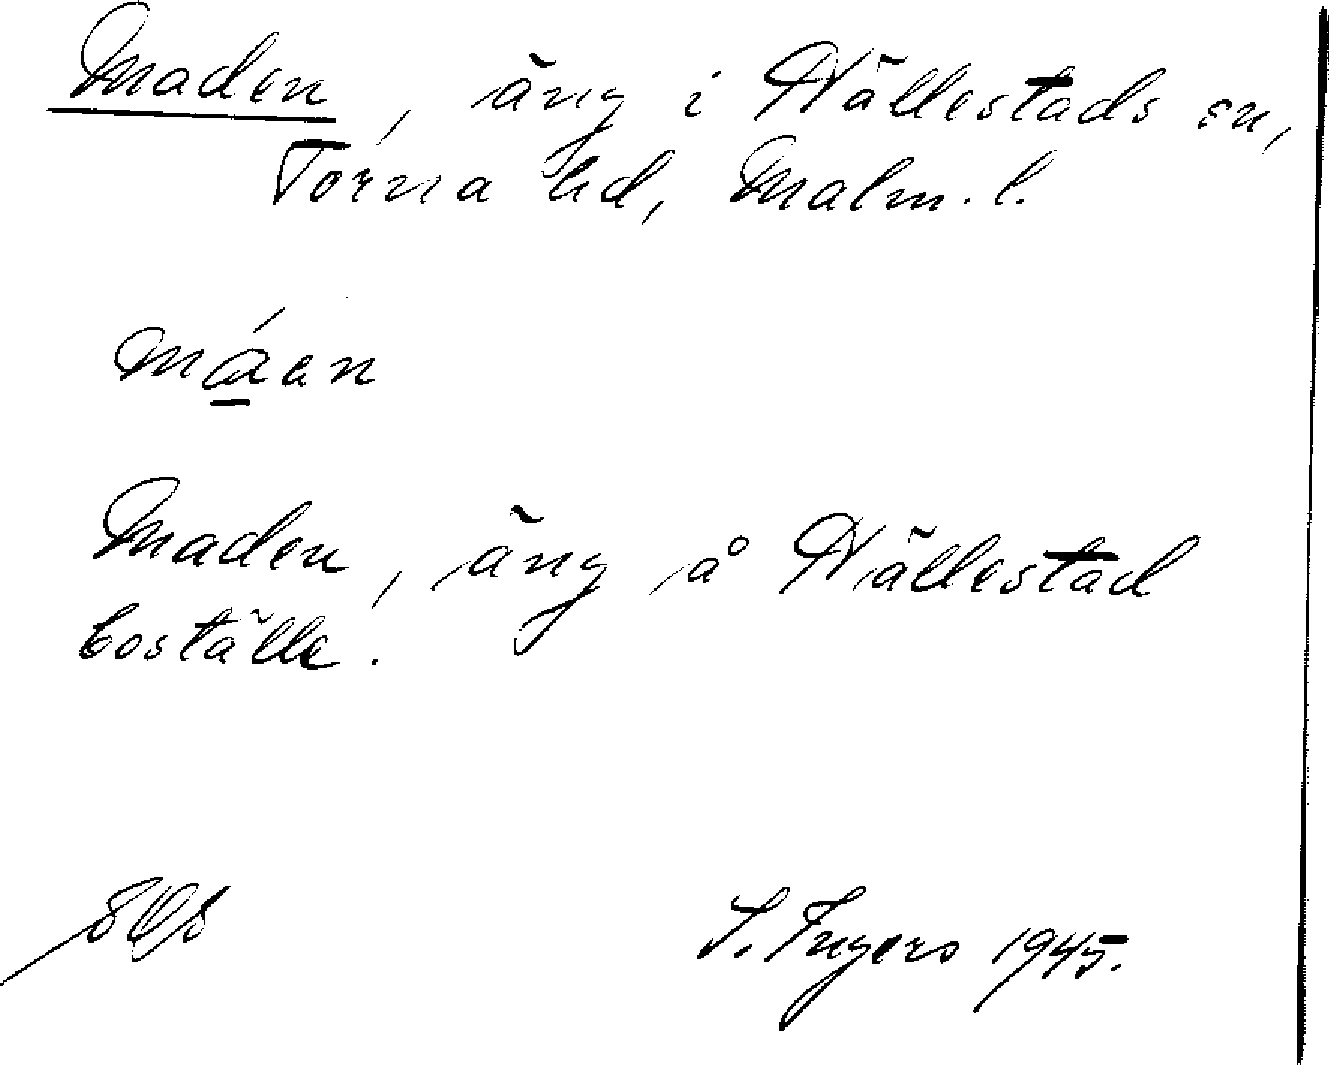 Maden, äng i Hällestads sn,
Torna hd, Malm. l.
máen
Maden, äng å Hällestad
boställe.
I. Ingers 1945.